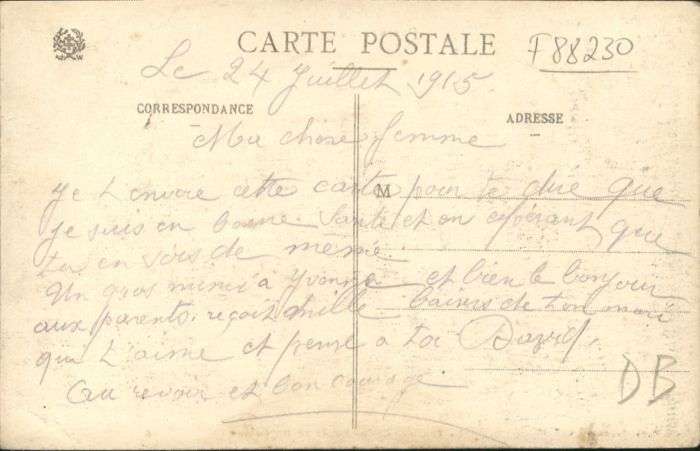 CARTE POSTALE
F88230
Le 24 Juillet 1915
CORRESPONDANCE
ADRESSE
Ma chère femme
M
Je t'envoie cette carte pour te dire que
je suis en bonne Santé et en espérant que
toi en sois de même.
Un gros mimi à Yvonne et bien le bonjour
aux parents, reçoit mille baisers de ton mari
qui t'aime et pense à toi David.
Au revoir et bon courage
DB